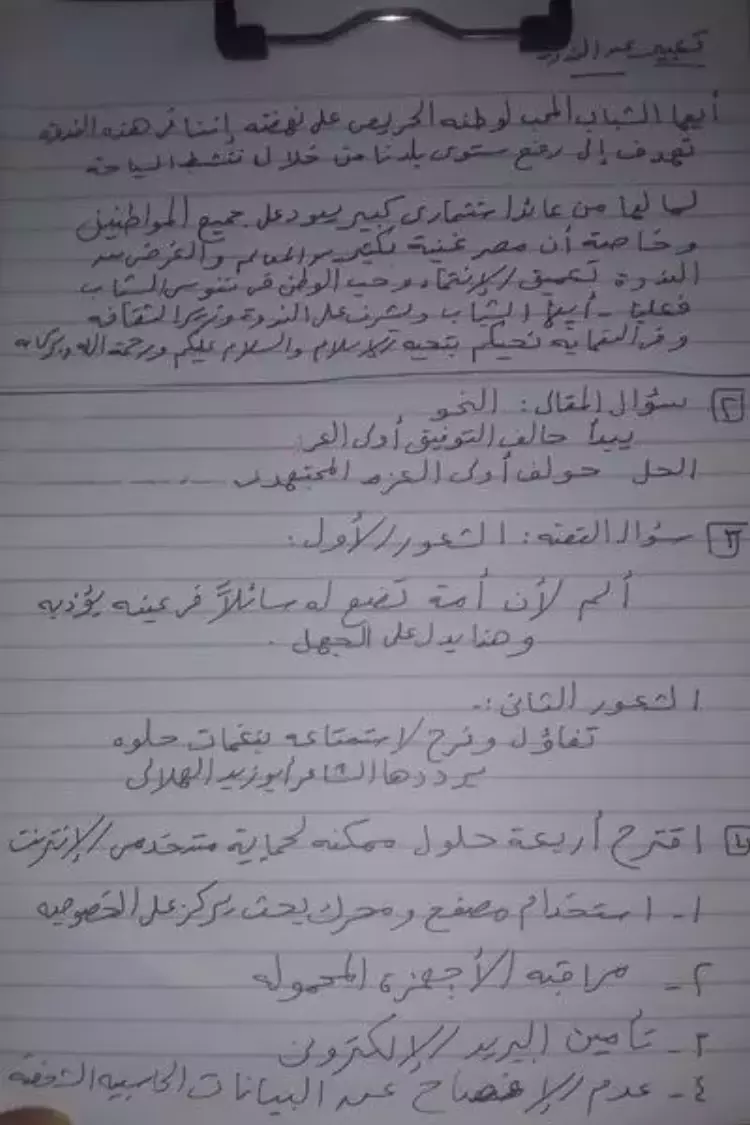 تعبير عن الندوة
أيها الشباب المحب لوطنه الحريص على نهضته إننا في هذه الندوة
نهدف إلى رفع مستوى بلدنا من خلال تنشيط السياحة
لما لها من عائد استثمارى كبير يعود على جميع المواطنين
وخاصة أن مصر غنية بكثير من المعالم والغرض من
الندوة تعميق الإنتماء وحب الوطن فى نفوس الشباب
فعلينا - أيها الشباب
وفى النهاية نحييكم بتحية الإسلام والسلام عليكم ورحمة الله وبركاته
٢ سؤال المقال: النحو
يبدأ حالف التوفيق أولى العز
الحل حولف أولى العزم المجتهدون
٣ سؤال القصة: الشعور الأول:
ألم لأن أمة تضع له سائلاً فى عينه يؤذيه
وهذا يدل على الجهل.
الشعور الثانى:-
تفاؤل وفرح لاستمتاعه بنغمات حلوه
يرددها الشاعر ابو زيد الهلالى
اقترح أربعة حلول ممكنه لحماية مستخدمى الإنترنت
١- استخدام متصفح ومحرك بحث يركز على الخصوصيه
٢- مراقبه الأجهزة المحموله
٣- تأمين البريد الإلكترونى
٤- عدم الإفصاح عن البيانات الحاسبيه الشخصية